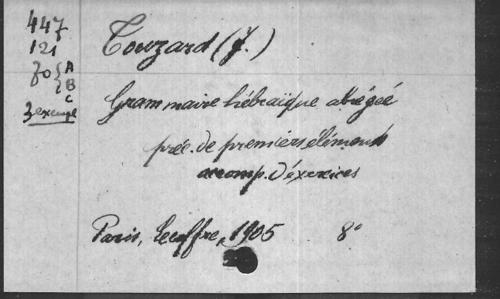 447
121
30 { A
B
C
3 exempl
Touzard (J.)
Grammaire hébraïque abrégée
préc. de premiers éléments
accomp. d'éxercices
Paris, Lecoffre, 1905 8°